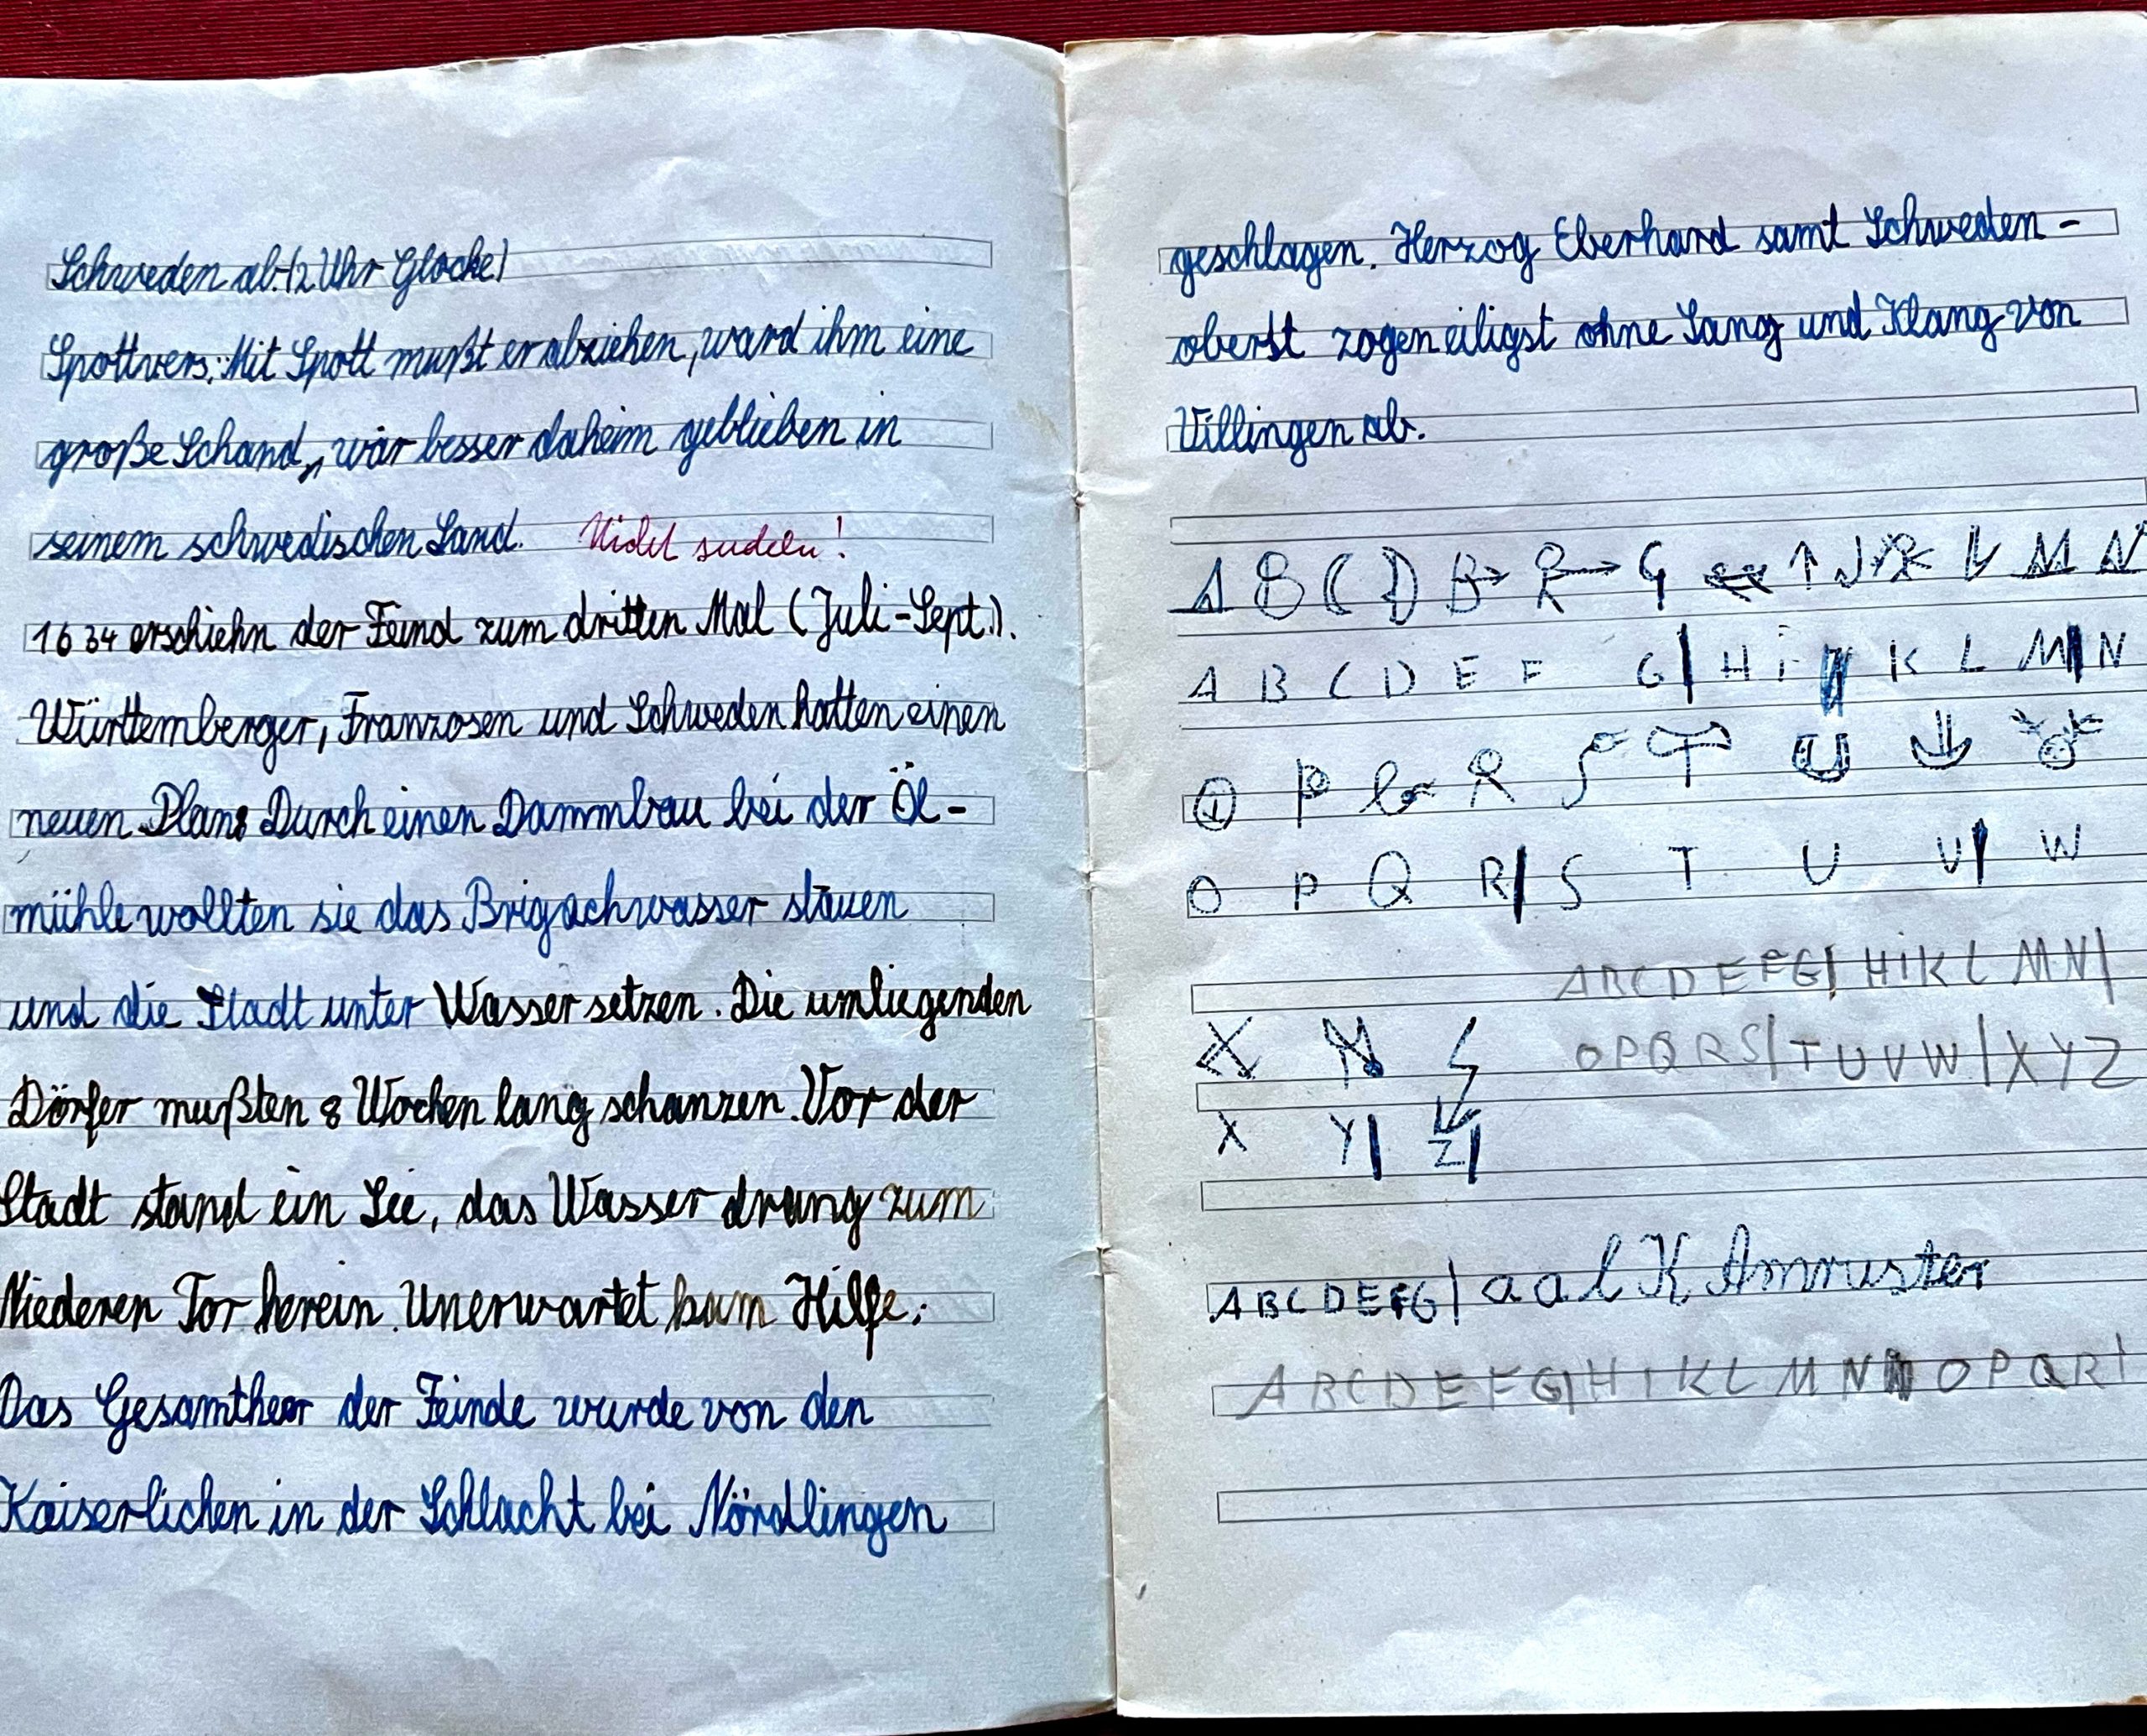 Schweden ab. (2 Uhr Glocke)
Spottvers: Mit Spott mußt er abziehen, ward ihm eine
große Schand, wär besser daheim geblieben in
seinem schwedischen Land. Nicht sudeln!
1634 erschiehn der Feind zum dritten Mal (Juli-Sept.).
Württemberger, Franzosen und Schweden hatten einen
neuen Plan: Durch einen Dammbau bei der Öl-
mühle wollten sie das Brigachwasser stauen
und die Stadt unter Wasser setzen. Die umliegenden
Dörfer mußten 8 Wochen lang schanzen. Vor der
Stadt stand ein See, das Wasser drang zum
Niederen Tor herein. Unerwartet kam Hilfe:
Das Gesamtheer der Feinde wurde von den
Kaiserlichen in der Schlacht bei Nördlingen
geschlagen. Herzog Eberhard samt Schweden-
oberst zogen eiligst ohne Sang und Klang von
Villingen ab.
A B C D E R G ↑ J K L M N
A B C D E F G | H i K L M | N
O P Q R S T U V W
O P Q R | S T U V | W
A B C D E F G | H i K L M N |
O P Q R S | T U V W | X Y Z
X Y Z
X Y | Z |
A B C D E F G | a a l K Amruster
A B C D E F G | H I K L M N O P Q R |